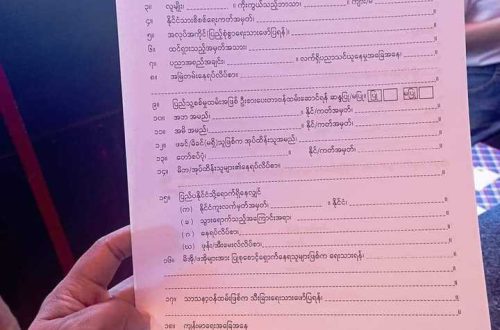 ၃။ လူမျိုး၊ ။ ကိုးကွယ်သည့်ဘာသာ၊ ။ ကျား/မ
၄။ နိုင်ငံသားစိစစ်ရေးကတ်အမှတ်၊ ။
၅။ အလုပ်အကိုင်(ပြည့်စုံစွာရေးသားဖော်ပြရန်)၊ ။
၆။ ထင်ရှားသည့်အမှတ်အသား၊ ။
၇။ ပညာအရည်အချင်း၊ ။ လက်ရှိပညာသင်ယူနေမှုအခြေအနေ၊
၈။ အမြဲတမ်းနေရပ်လိပ်စာ၊ ။
၉။ ပြည်သူ့စစ်မှုထမ်းအဖြစ် ဦးစားပေးတာဝန်ထမ်းဆောင်ရန် ဆန္ဒပြု/မပြု။ ပြု မပြု
၁၀။ အဘ အမည်၊ ။ နိုင်/ကတ်အမှတ်၊ ။
၁၁။ အမိ အမည်၊ ။ နိုင်/ကတ်အမှတ်၊ ။
၁၂။ ဖခင်/မိခင်(မရှိ)သူဖြစ်က အုပ်ထိန်းသူအမည်၊ ။
၁၃။ တော်စပ်ပုံ၊ ။ နိုင်/ကတ်အမှတ်၊ ။
၁၄။ မိဘ/အုပ်ထိန်းသူများ၏နေရပ်လိပ်စာ၊ ။
၁၅။ ပြည်ပနိုင်ငံသို့ရောက်ရှိနေလျှင်
(က) နိုင်ငံကူးလက်မှတ်အမှတ်၊ ။ နိုင်ငံ၊ ။
(ခ) သွားရောက်သည့်အကြောင်းအရာ၊ ။
(ဂ) နေရပ်လိပ်စာ၊ ။
(ဃ) ဖုန်း/အီးမေးလ်လိပ်စာ၊ ။
၁၆။ မိအို/ဖအိုများအား ပြုစုစောင့်ရှောက်နေရသူများဖြစ်က ရေးသားရန်၊
၁၇။ သာသနာ့ဝန်ထမ်းဖြစ်က သီးခြားရေးသားဖော်ပြရန်၊
၁၈။ ကျန်းမာရေးအခြေအနေ